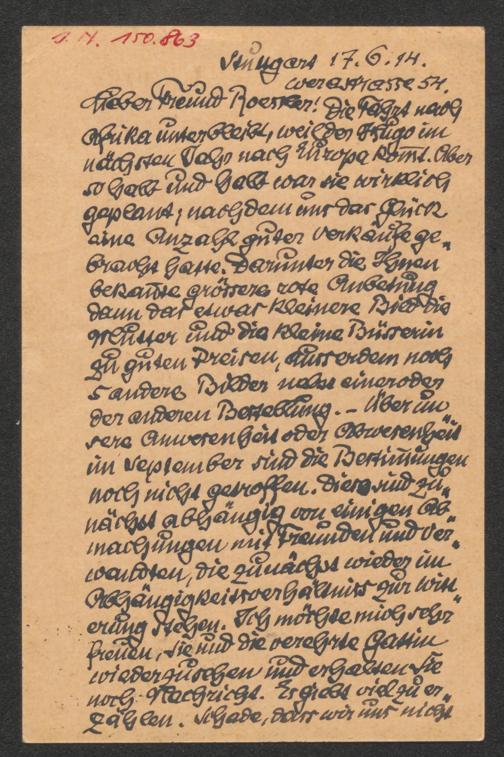 J. N. 150.863
Stuttgart 17.6.14.
Werastrasse 54.
Lieber Freund Roessler! Die Fahrt nach
Afrika unterbleibt, weil der Hugo im
nächsten Jahr nach Europa komt. Aber
so halb und halb war sie wirklich
geplant, nachdem uns das Glück
eine Anzahl guter Verkäufe ge-
bracht hatte. Darunter die Ihnen
bekannte grössere rote Anbetung
dann das etwas kleinere Bild die
Mutter und die kleine Büsserin
zu guten Preisen, ausserdem noch
5 andere Bilder nebst einer oder
der anderen Bestellung. – Über un
sere Anwesenheit oder Abwesenheit
im September sind die Bestimungen
noch nicht getroffen. Diese sind zu-
nächst abhängig von einigen Ab-
machungen mit Freunden und Ver-
wandten, die zunächst wieder im
Abhängigkeitsverhältniss zur Witt-
erung stehen. Ich möchte mich sehr
freuen, Sie und die verehrte Gattin
wiederzusehen und erhalten Sie
noch Nachricht. Es giebt viel zu er-
zählen. Schade, dass wir uns nicht